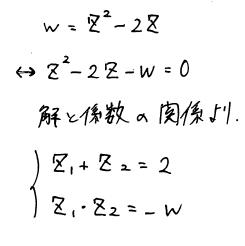 w = z² - 2z
↔ z² - 2z - w = 0
解と係数の関係より.
{ z₁ + z₂ = 2
z₁・z₂ = -w